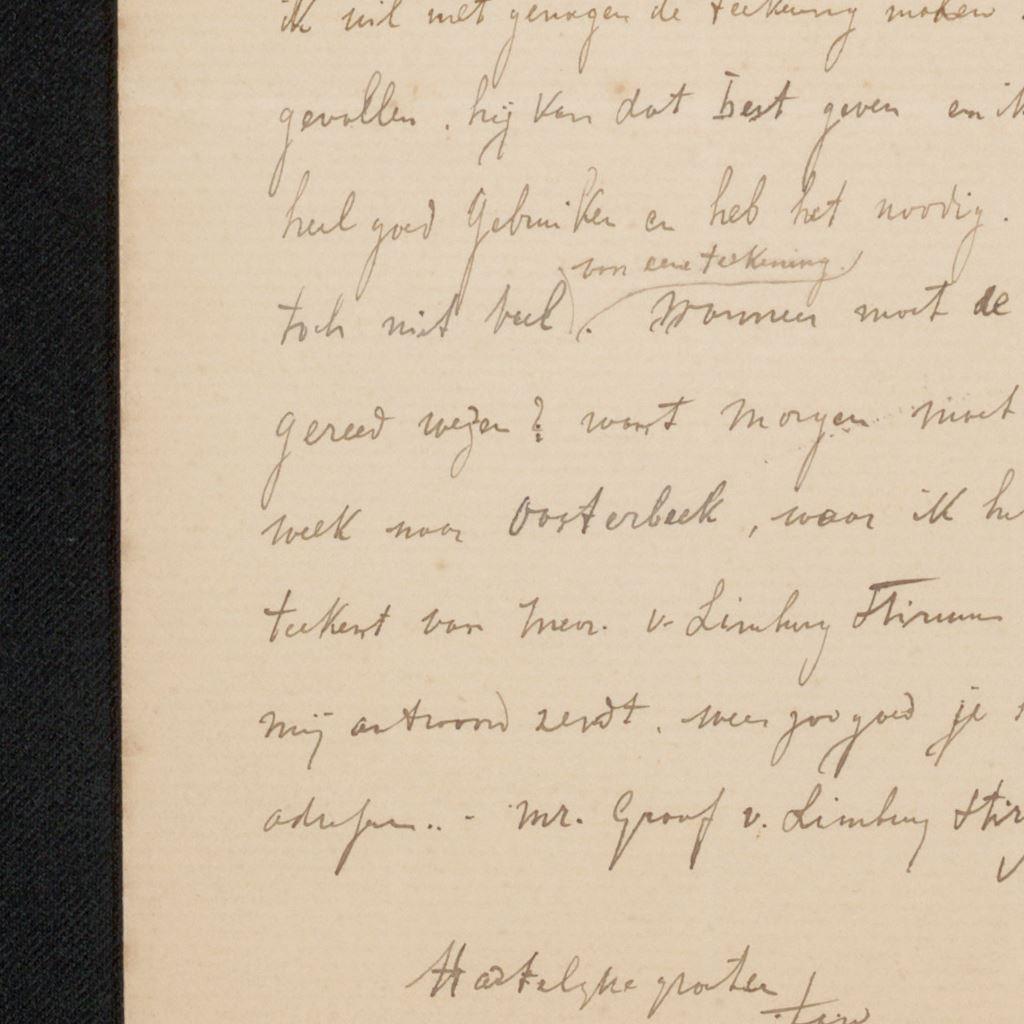 ik wil met genoegen de teekening maken
gevallen. hij kan dat best geven en ik
heel goed gebruiken en heb het noodig.
van eene teekening.
toch niet veel). Wanneer moet de
gereed wezen? want morgen moet
week naar Oosterbeek, waar ik
teekent van Mevr. v. Limburg Stirum
mij antwoord zendt. wees zoo goed je
adressen.. - Mr. Graaf v. Limburg Stir
Hartelijke groeten